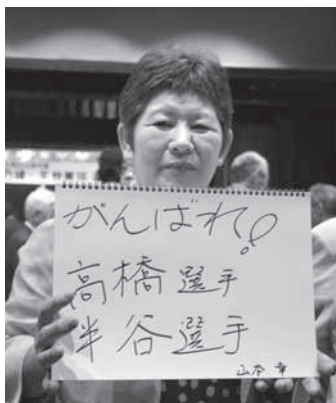 がんばれ！
高橋選手
半谷選手
山本幸